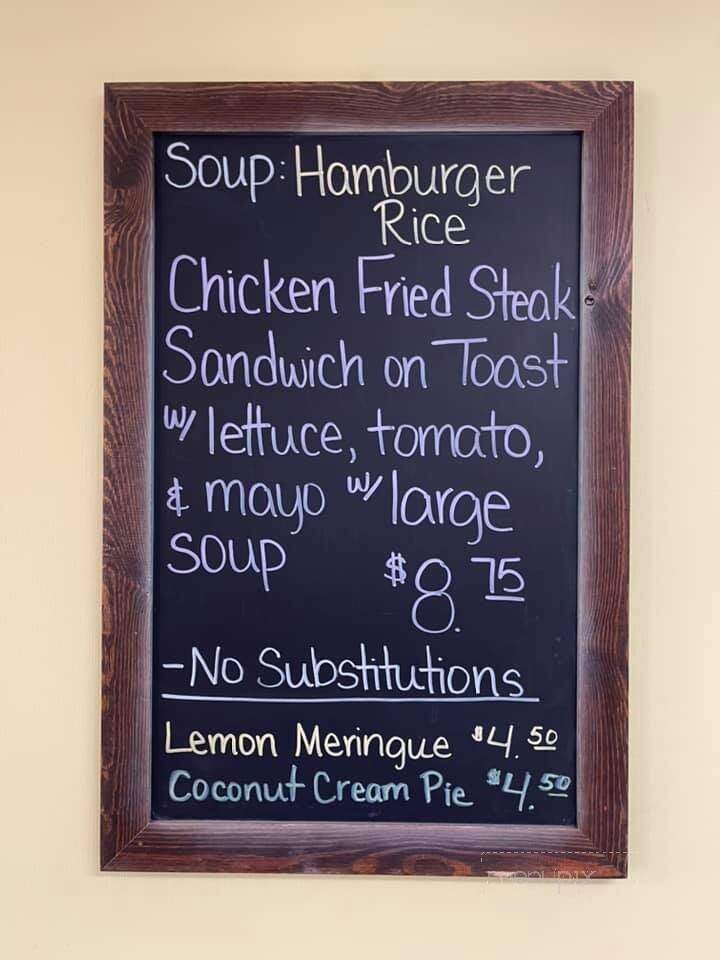 Soup: Hamburger
Rice
Chicken Fried Steak
Sandwich on Toast
w/ lettuce, tomato,
& mayo w/ large
soup $8.75
-No Substitutions
Lemon Meringue $4.50
Coconut Cream Pie $4.50